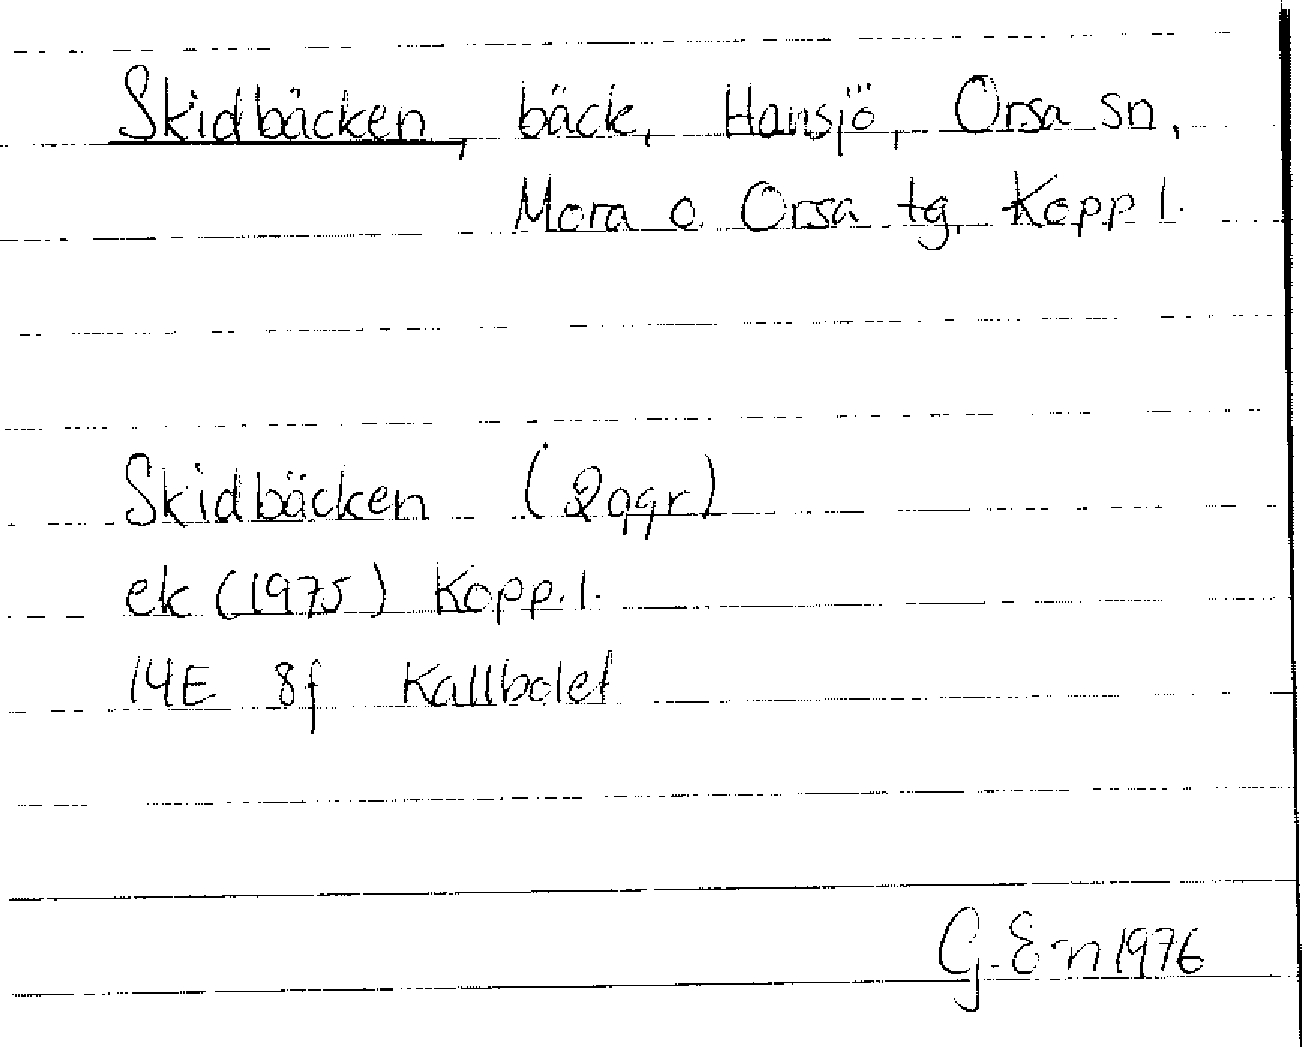 Skidbäcken, bäck, Hansjö, Orsa sn,
Mora o. Orsa tg, Kopp l.
Skidbäcken (2ggr)
ek (1975) Kopp. l.
14E 8f Kallbolet
G. E-n 1976